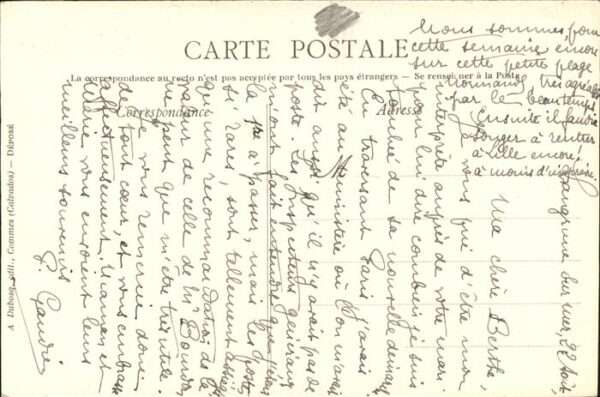 CARTE POSTALE
La correspondance au recto n'est pas acceptée par tous les pays étrangers — Se renseigner à la Poste
Correspondance
Adresse
A. Dubosq, édit., Cannes (Calvados) — Déposé
Langrune sur mer, 22 Août
Ma chère Berthe,
Je vous prie d'être mon
interprète auprès de votre mari
pour lui dire combien je suis
touché de sa nouvelle démarche
En traversant Paris j'avais
été au Ministère où l'on m'avait
dit aussi qu'il n'y avait pas de
poste. Les Inspecteurs généraux
m'ont fait entendre que j'étais
le 1er à passer, mais les postes
si rares, sont tellement
qu'une recommandation de la
valeur de celle de Mr Bourdon
ne peut que m'être très utile.
Je vous remercie donc
de tout cœur, et vous embrasse
affectueusement. Maman et
Marie vous envoient leurs
meilleurs souvenirs
P. Gaudin
Nous sommes pour
cette semaine encore
sur cette petite plage
normande, très agréable
par le beau temps
Ensuite il faudra
songer à rentrer
à ville encore,
à moins d'imprévu.